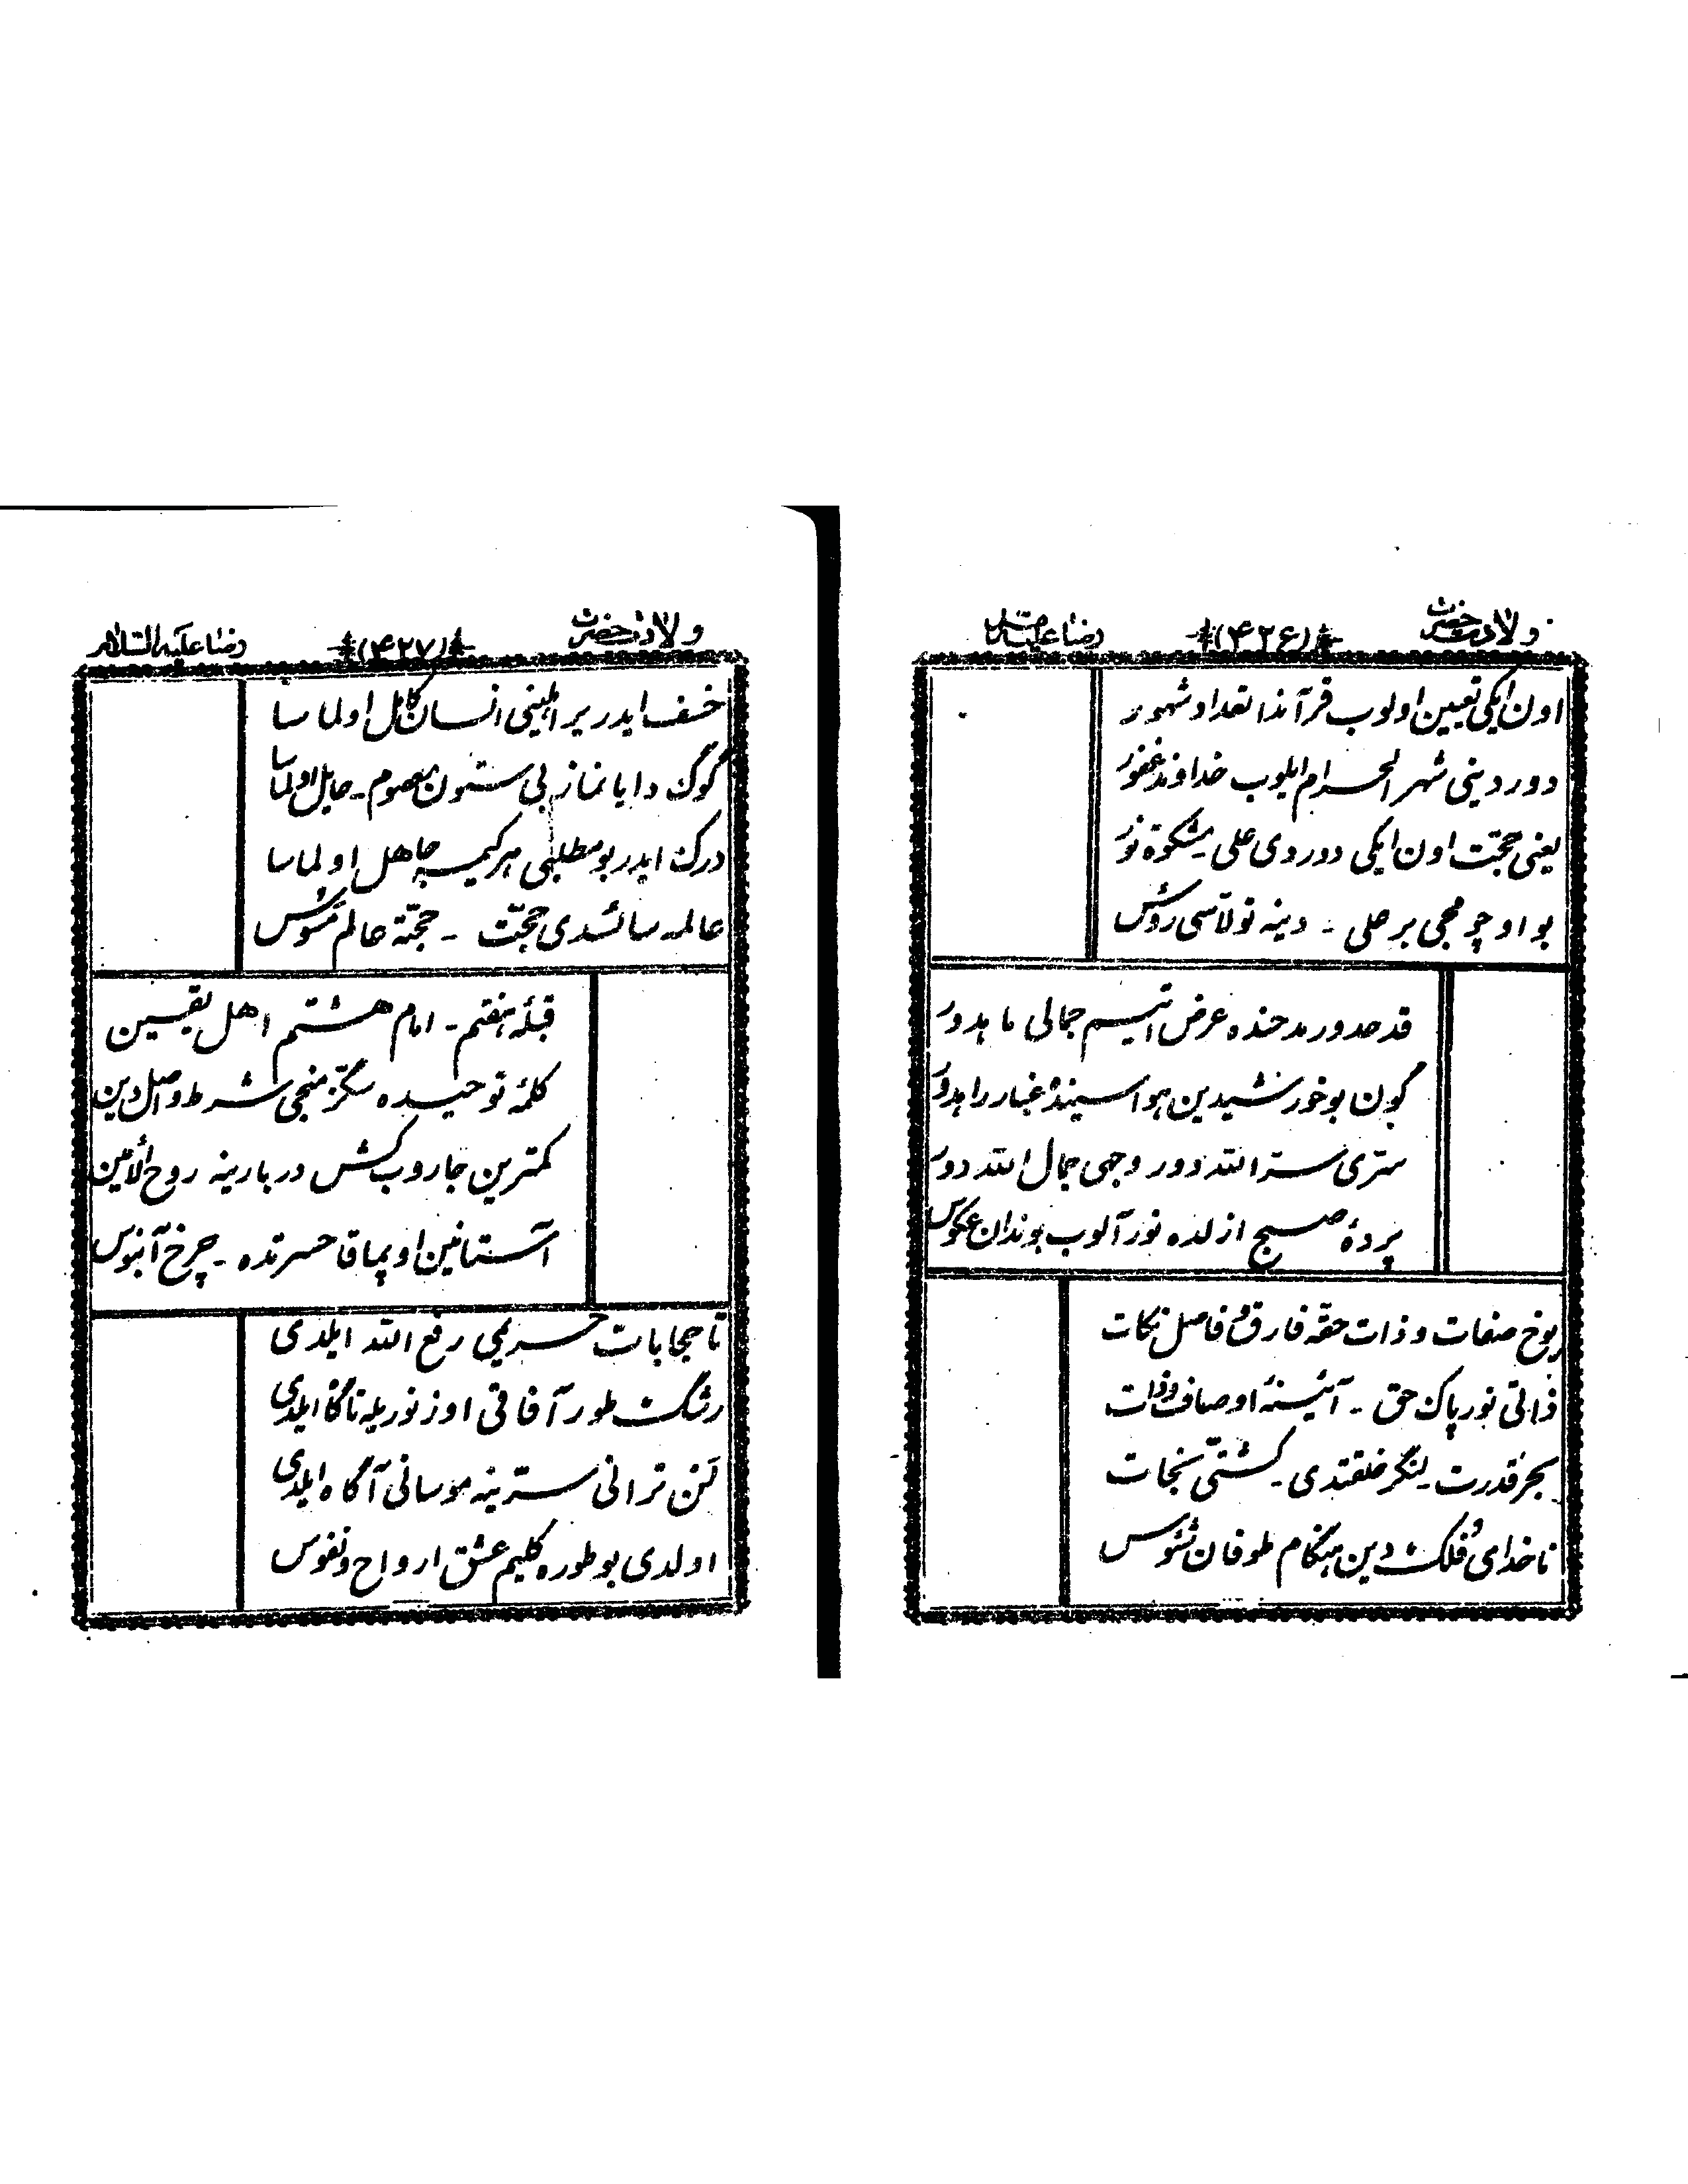 ولادت حضرت (۴۲۶) رضا علیه
اون ایکی تعیین اولوب قرآندا تعداد شهور
دور دینی شهر الحرام ایلوب خداوند غفور
یعنی حجت اون ایکی دور دی علی مشکوة نور
بو اوچومجی بر علی - دینه تولاسی روش
قد صدور مدحنده عرض اتیسم جمالی ماهدور
گون بو خورشیدین هواسینده غبار راهدور
ستری ستر الله دور وجهی جمال الله دور
پردهٔ صبح ازلده نور آلوب بوندان عکوس
بوخ صفات و ذات حقه فارق و فاصل نکات
ذاتی نور پاک حق - آئینهٔ اوصاف و ذات
بحر قدرت - لنگر خلقتدی - کشتی نجات
ناخدای فلک دین هنگام طوفان شئوس
ولادت حضرت (۴۲۷) رضا علیه السلام
خسف ایدر یر اهلینی انسان کامل اولماسا
گوگ دایانماز بی ستون معصوم - حایل اولماسا
درک ایدر بو مطلبی هر کیمسه جاهل اولماسا
عالمه سائسدی حجت - حجته عالم مسوس
قبلهٔ هفتم - امام هشتم اهل یقین
کلمهٔ توحیده سگزمنجی شرط و اصل دین
کمترین جاروب کش دربارینه روح الامین
آستانین اوپماقا حسرتده - چرخ آبنوس
تا حجابات حریمی رفع الله ایلدی
رشک طور آفاقی اوز نوریله ناگاه ایلدی
لن ترانی سترینه موسانی آگاه ایلدی
اولدی بو طوره کلیم عشق ارواح و نفوس